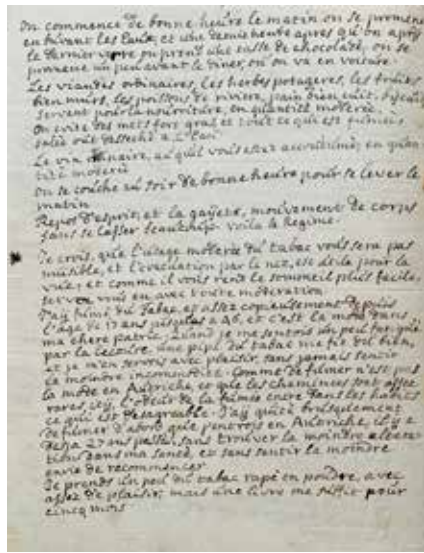 On commence de bonne heure le matin on se promene
en buvant les Eaux, et une demie heure apres qu'on a pris
le dernier verre on prend une tasse de chocolade, on se
promene un peu avant le diner, ou on va en voiture.
Les viandes ordinaires, les herbes potageres, les fruits
bien murs, les poissons de riviere, pain bien cuit, biscuit
servent pour la nourriture, en quantité moderée.
On evite des mets fort gras, et tout ce qui est fumée,
salée out desseché a l'air
Le vin ordinaire, au quel vous estez accoutumé, en quan
tité moderée
on se couche au soir de bonne heure pour se lever le
matin
Repos d'esprit, et la gayeté, mouvement de corps
sans se lasser beaucoup voila le Regime.
Je crois, que l'usage moderée du tabac vous sera pas
nuisible, et l'evacuation par le nez, est utile pour la
vue, et comme il vous rend le sommeil plus facile,
servez vous en avec toute moderation.
J'ay fumé du tabac, et assez copieusement depuis
l'age de 17 ans jusqu'as a 46, et c'est la mode dans
ma chere patrie, quand je me sentois un peu fatigué
par la lecture, une pipe du tabac me fit du bien,
et je m'en servois avec plaisir, sans jamais sentir
la moindre incommodité. Comme de fumer n'est pas
la mode en Autriche, et que les cheminées sont assez
rares, icy, l'odeur de la fumée entre dans les habits
ce qui est desagreable. J'ay quité brusquement
de fumer d'abord que j'entrois en Autriche, il y a
deja 27 ans passé, sans trouver la moindre altera-
tion dans ma santé, et sans sentir la moindre
envie de recommencer
Je prends un peu du tabac rapé en poudre, avec
assez de plaisir, mais une livre me suffit pour
cinq mois